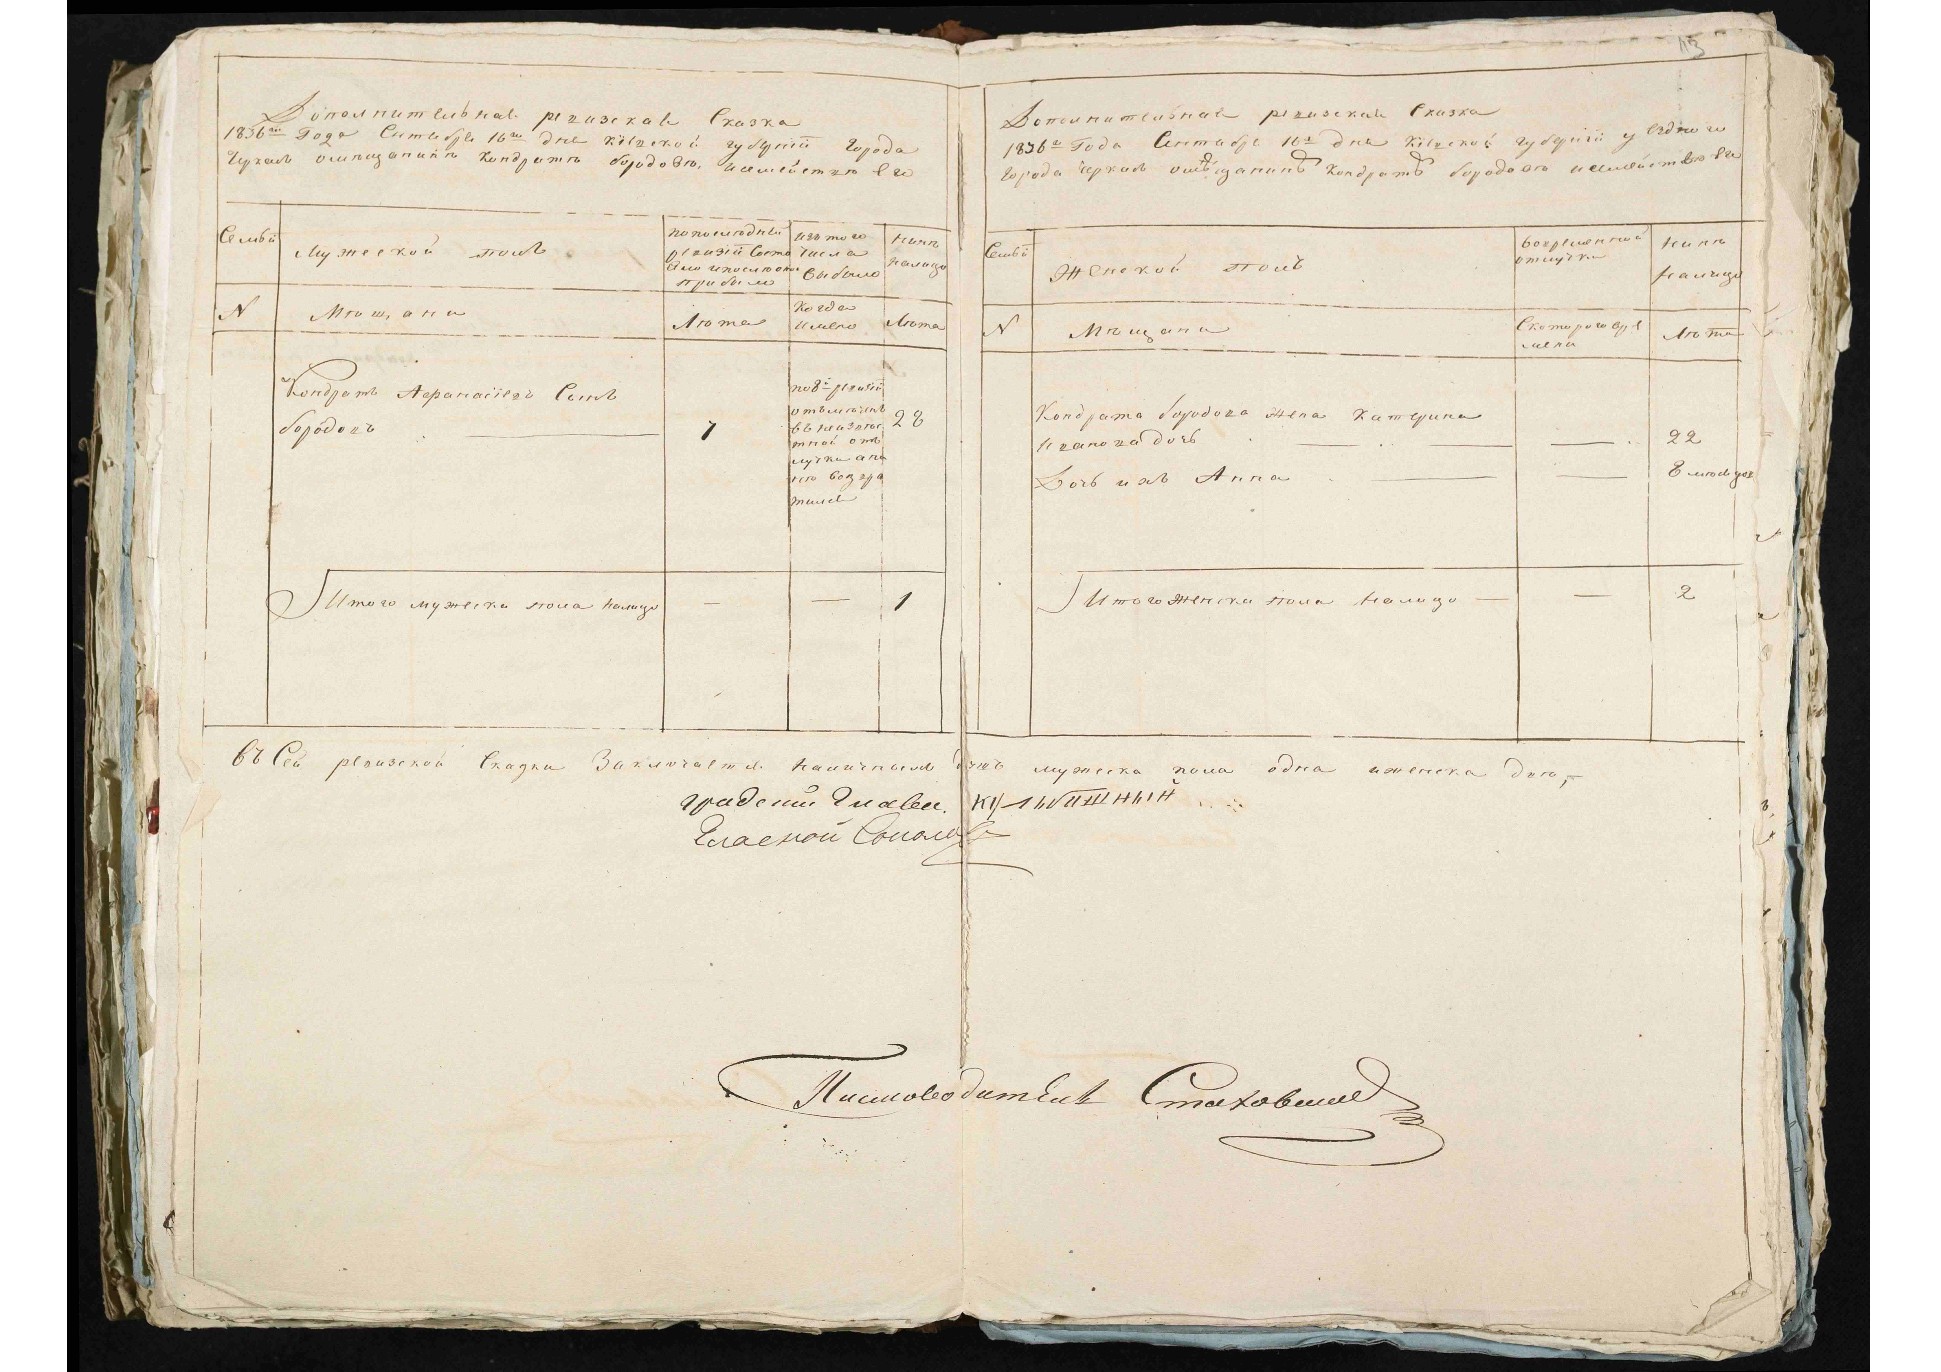 13
Дополнительная ревизская Сказка
1836го Года Сентября 16го дня Кіевской губерніи Города
Черкас омещанине Кондрате бородове, исемействе его
Семьи
Мужеской полъ
попоследней ревизіи состояло ипослетого прибыло
изътого числа выбыло
Ныне налицо
N
Мещане
Лета
Когда имено
Лета
Кондратъ Афанасіевъ Сынъ
бородовъ
7
по 8й ревизіи
28
Итого мужеска пола налицо — — 1
Дополнительная ревизская Сказка
1836го Года Сентября 16го дня Кіевской губерніи уездного
Города Черкас омещанине Кондрате бородове исемействе его
Семьи
Женской полъ
вовременной отлучке
Ныне налицо
N
Мещане
Скоторого времени
Лета
Кондрата бородова жена Катерина
Иванова дочь — — — 22
Дочь ихъ Анна — — 8 месяцов
Итого женска пола налицо — — 2
въ Сей ревизской Сказки Заключается наличныхъ душъ мужеска пола одна иженска две,
градский Глава
Гласной
Писмоводитель Стаховский